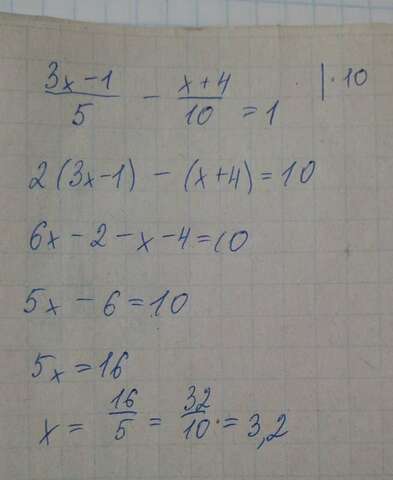 (3x-1)/5 - (x+4)/10 = 1 |·10
2(3x-1) - (x+4) = 10
6x - 2 - x - 4 = 10
5x - 6 = 10
5x = 16
x = 16/5 = 32/10 = 3,2